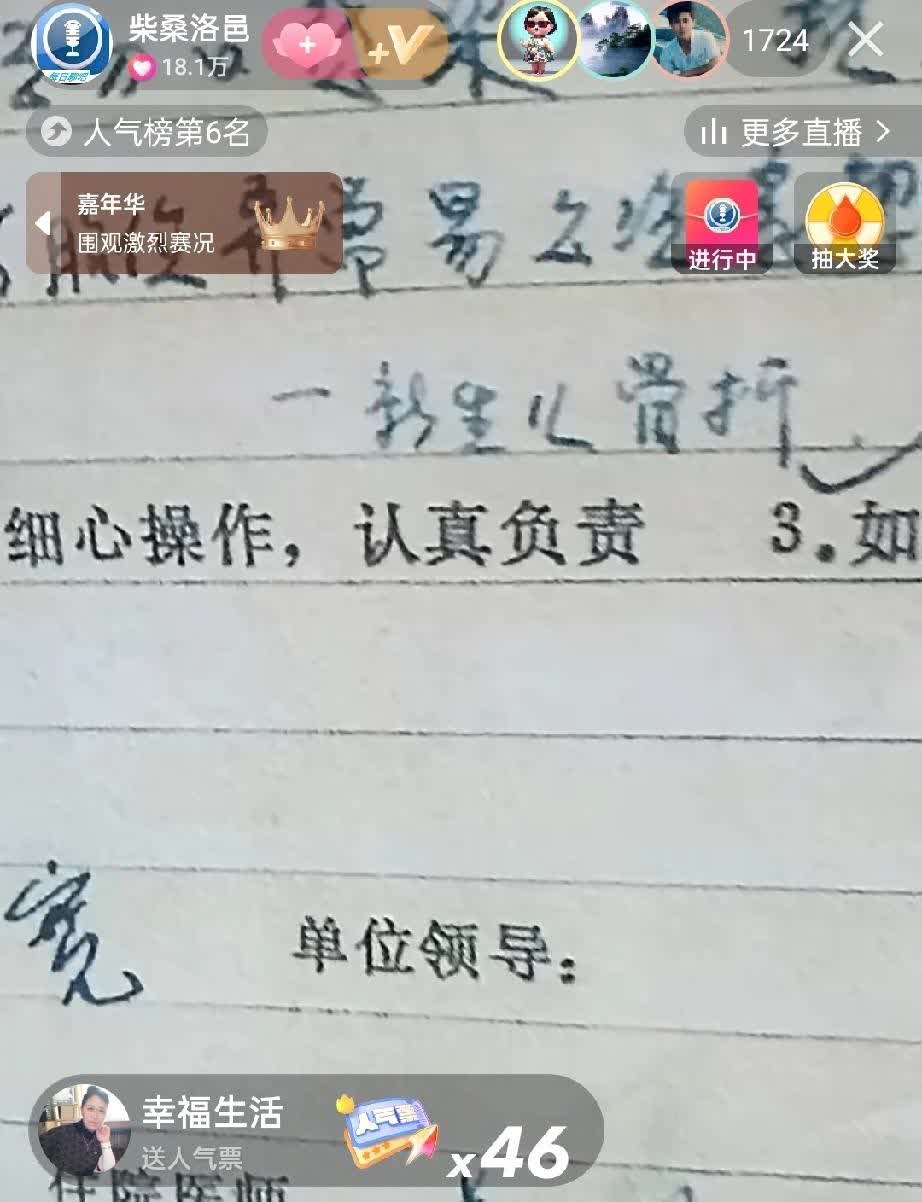 柴桑洛邑
18.1万
+V
1724
人气榜第6名
更多直播
嘉年华
围观激烈赛况
进行中
抽大奖
常易
一新生儿骨折
细心操作，认真负责 3.如
宽 单位领导：
幸福生活
送人气票
人气票
x46
住院医师